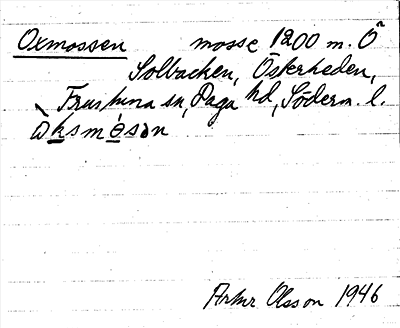 Oxmossen mosse 1200 m. Ö
Solbacken, Österheden,
Trustuna sn, Daga hd, Söderm. l.
ò̀ksmòsən
Artur Olsson 1946